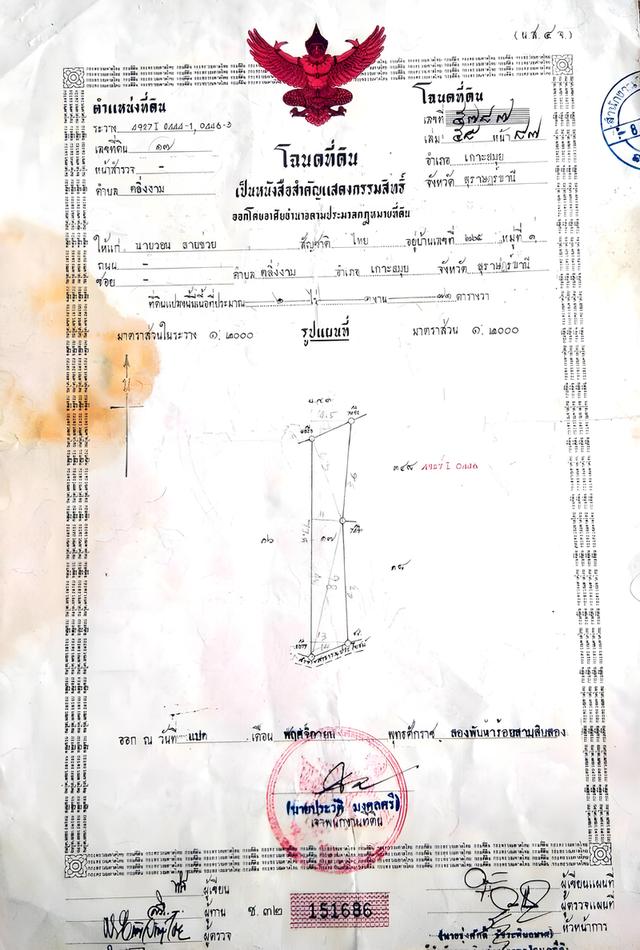 (น.ส. ๔ จ.)
ตำแหน่งที่ดิน
ระวาง 4927 I 0444-1, 0446-3
เลขที่ดิน ๑๗
หน้าสำรวจ -
ตำบล ตลิ่งงาม
โฉนดที่ดิน
เลขที่ ๕๗๘๗
เล่ม ๕๘ หน้า ๘๗
อำเภอ เกาะสมุย
จังหวัด สุราษฎร์ธานี
โฉนดที่ดิน
เป็นหนังสือสำคัญแสดงกรรมสิทธิ์
ออกโดยอาศัยอำนาจตามประมวลกฎหมายที่ดิน
ให้แก่ นายวอน สายช่วย สัญชาติ ไทย อยู่บ้านเลขที่ ๒๖๕ หมู่ที่ ๑
ถนน -
ซอย - ตำบล ตลิ่งงาม อำเภอ เกาะสมุย จังหวัด สุราษฎร์ธานี
ที่ดินแปลงนี้มีเนื้อที่ประมาณ ๒ ไร่ งาน ๗๑ ตารางวา
มาตราส่วนในระวาง ๑: ๒๐๐๐ รูปแผนที่ มาตราส่วน ๑: ๒๐๐๐
น.ส.๓
๓๔๙ 4927 I 0446
๑๗
๑๘
ทางสาธารณประโยชน์
ออก ณ วันที่ แปด เดือน พฤศจิกายน พุทธศักราช สองพันห้าร้อยสามสิบสอง
(นายประวัติ มงคลศรี)
เจ้าพนักงานที่ดิน
ผู้เขียน
ผู้ทาน
ผู้ตรวจ
ช. ๓๒ 151686
ผู้เขียนแผนที่
ผู้ตรวจ
หัวหน้าการ